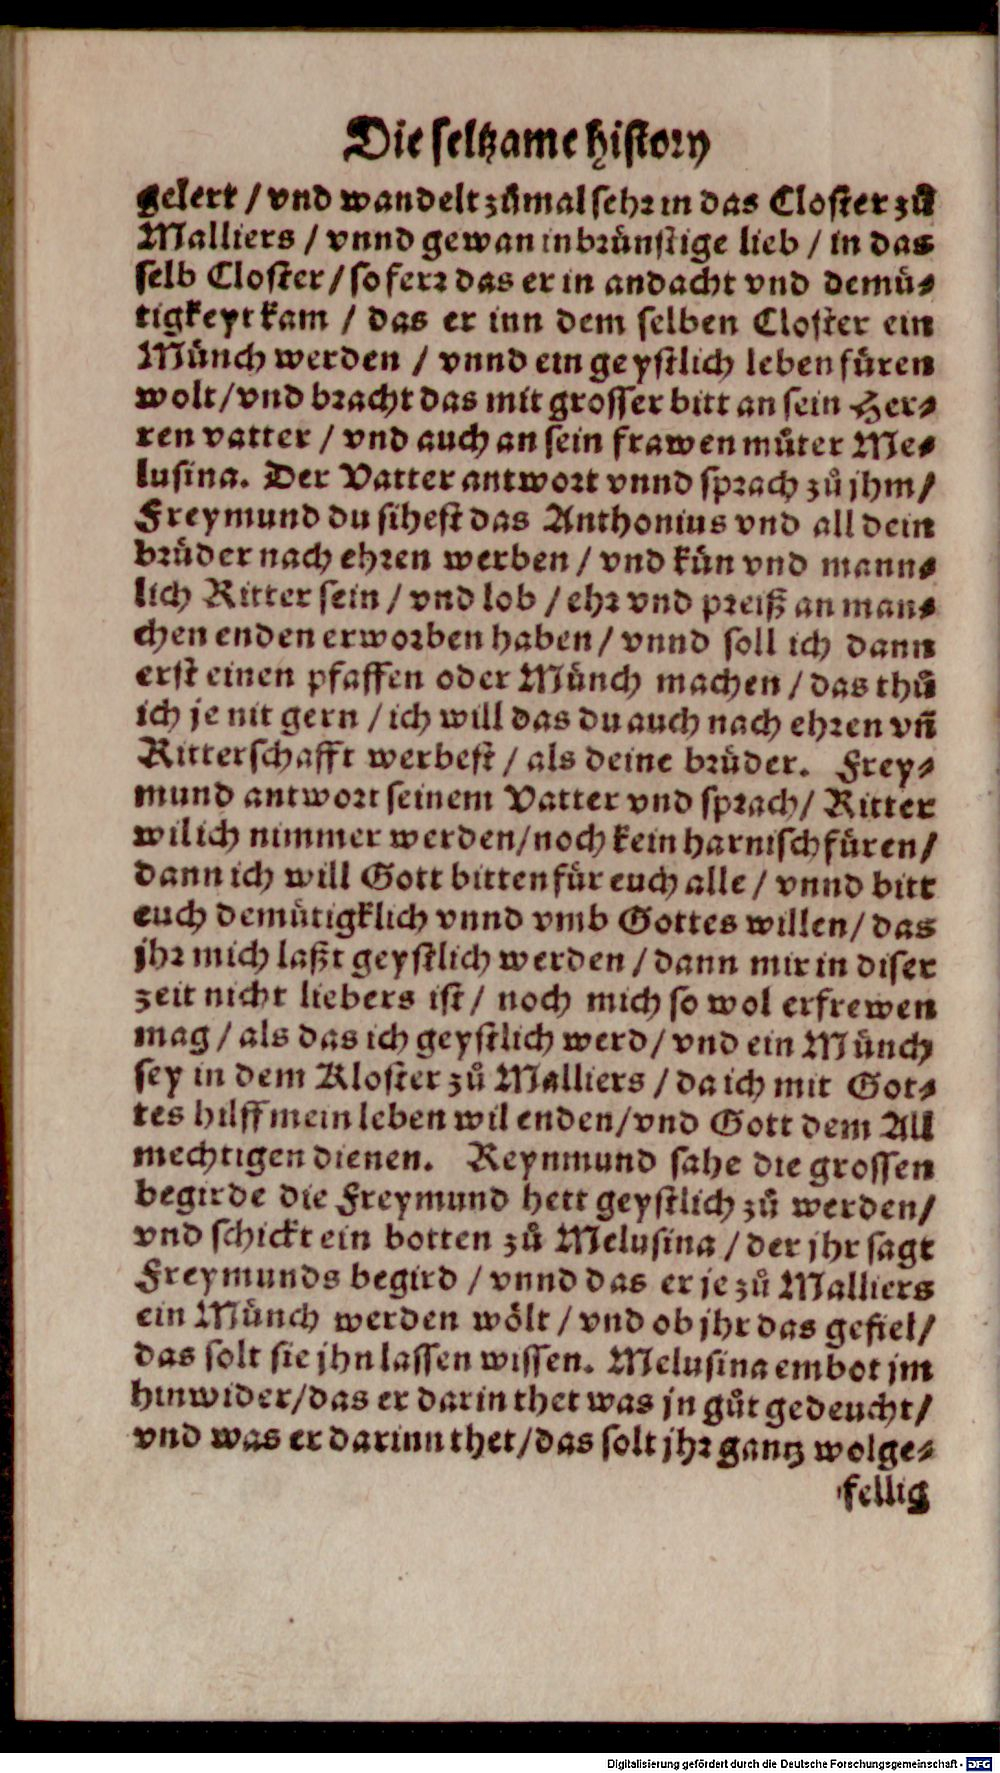 Die seltzame history
gelert / vnd wandelt zůmal sehr in das Closter zů
Malliers / vnnd gewan inbrünstige lieb / in das
selb Closter / so ferr das er in andacht vnd demü-
tigkeyt kam / das er inn dem selben Closter ein
Münch werden / vnnd ein geystlich leben füren
wolt / vnd bracht das mit grosser bitt an sein Her-
ren vatter / vnd auch an sein frawen můter Me-
lusina. Der Vatter antwort vnnd sprach zů jhm /
Freymund du sihest das Anthonius vnd all dein
brüder nach ehren werben / vnd kün vnd mann-
lich Ritter sein / vnd lob / ehr vnd preiß an man-
chen enden erworben haben / vnnd soll ich dann
erst einen pfaffen oder Münch machen / das thů
ich je nit gern / ich will das du auch nach ehren vñ
Ritterschafft werbest / als deine brüder. Frey-
mund antwort seinem Vatter vnd sprach / Ritter
wil ich nimmer werden / noch kein harnisch füren /
dann ich will Gott bitten für euch alle / vnnd bitt
euch demütigklich vnnd vmb Gottes willen / das
jhr mich laßt geystlich werden / dann mir in diser
zeit nicht liebers ist / noch mich so wol erfrewen
mag / als das ich geystlich werd / vnd ein Münch
sey in dem Kloster zů Malliers / da ich mit Got-
tes hilff mein leben wil enden / vnd Gott dem All
mechtigen dienen. Reynmund sahe die grossen
begirde die Freymund hett geystlich zů werden /
vnd schickt ein botten zů Melusina / der jhr sagt
Freymunds begird / vnnd das er je zů Malliers
ein Münch werden wölt / vnd ob jhr das gefiel /
das solt sie jhn lassen wissen. Melusina embot jm
hinwider / das er darin thet was jn gůt gedeucht /
vnd was er darinn thet / das solt jhr gantz wolge-
fellig
Digitalisierung gefördert durch die Deutsche Forschungsgemeinschaft - DFG